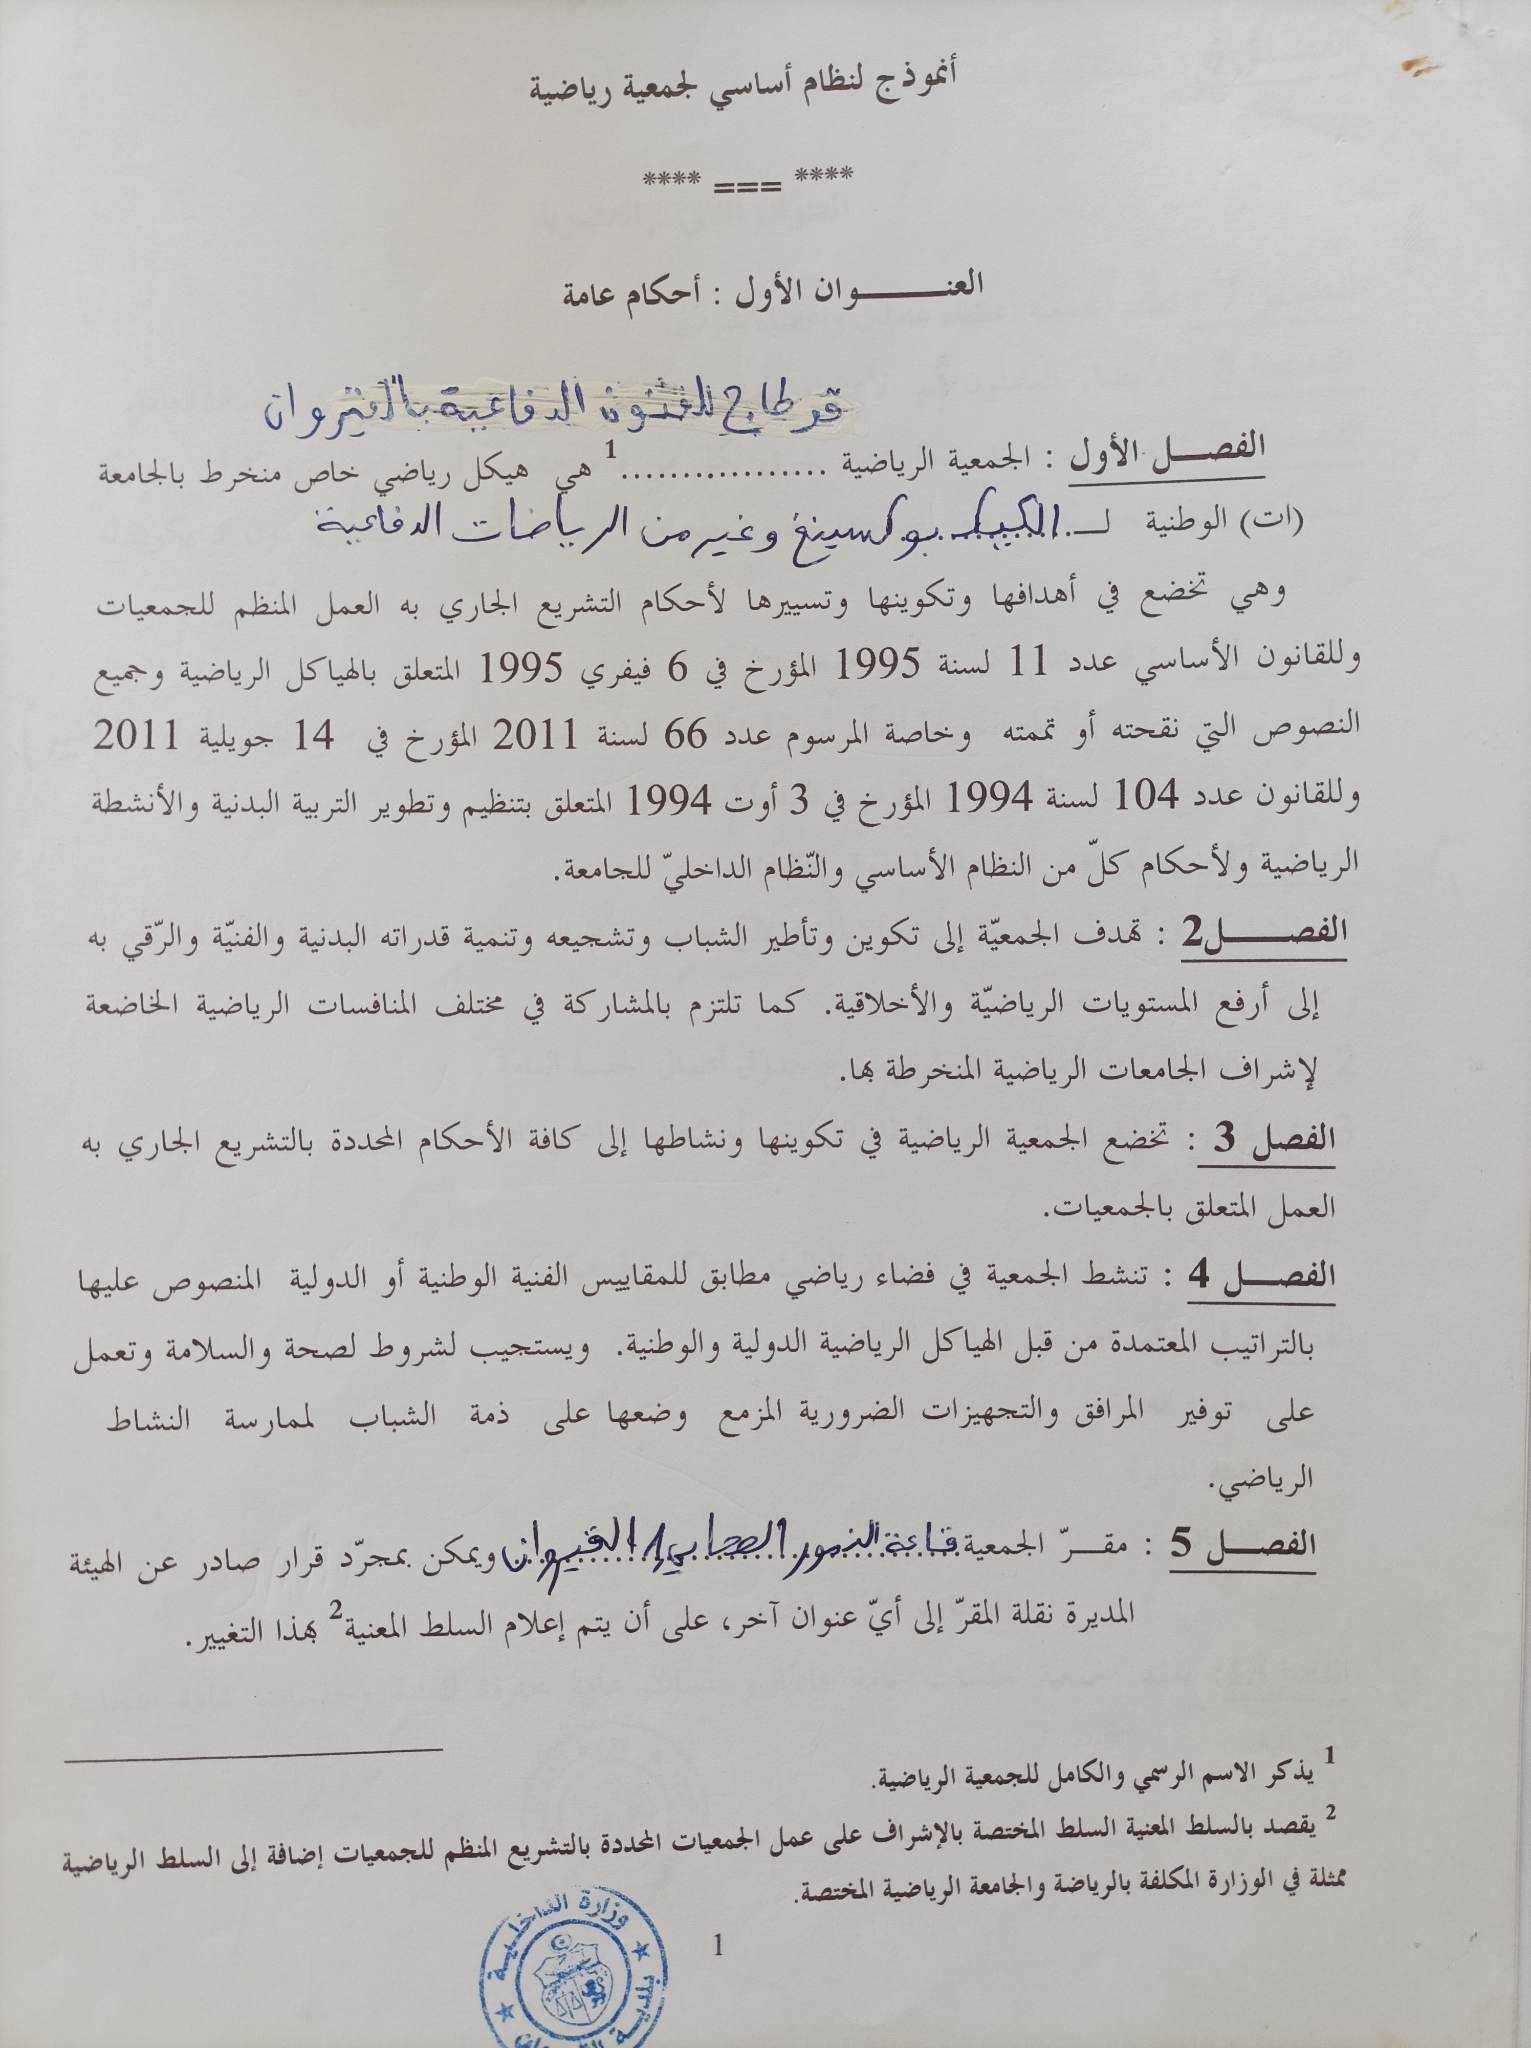 أنموذج لنظام أساسي لجمعية رياضية
**** === ****
العنـــــــوان الأول : أحكام عامة
قرطاج للفنون الدفاعية بالقيروان
الفصـــل الأول : الجمعية الرياضية .................1 هي هيكل رياضي خاص منخرط بالجامعة
(ات) الوطنية لـ الكيك بوكسينغ وغير من الرياضات الدفاعية
وهي تخضع في أهدافها وتكوينها وتسييرها لأحكام التشريع الجاري به العمل المنظم للجمعيات
وللقانون الأساسي عدد 11 لسنة 1995 المؤرخ في 6 فيفري 1995 المتعلق بالهياكل الرياضية وجميع
النصوص التي نقحته أو تممته وخاصة المرسوم عدد 66 لسنة 2011 المؤرخ في 14 جويلية 2011
وللقانون عدد 104 لسنة 1994 المؤرخ في 3 أوت 1994 المتعلق بتنظيم وتطوير التربية البدنية والأنشطة
الرياضية ولأحكام كلّ من النظام الأساسي والنّظام الداخليّ للجامعة.
الفصــــــل2 : تهدف الجمعيّة إلى تكوين وتأطير الشباب وتشجيعه وتنمية قدراته البدنية والفنيّة والرّقي به
إلى أرفع المستويات الرياضيّة والأخلاقية. كما تلتزم بالمشاركة في مختلف المنافسات الرياضية الخاضعة
لإشراف الجامعات الرياضية المنخرطة بها.
الفصل 3 : تخضع الجمعية الرياضية في تكوينها ونشاطها إلى كافة الأحكام المحددة بالتشريع الجاري به
العمل المتعلق بالجمعيات.
الفصـــل 4 : تنشط الجمعية في فضاء رياضي مطابق للمقاييس الفنية الوطنية أو الدولية المنصوص عليها
بالتراتيب المعتمدة من قبل الهياكل الرياضية الدولية والوطنية. ويستجيب لشروط لصحة والسلامة وتعمل
على توفير المرافق والتجهيزات الضرورية المزمع وضعها على ذمة الشباب لممارسة النشاط
الرياضي.
الفصـــل 5 : مقـــرّ الجمعية قاعة النمور القيروان ويمكن بمجرّد قرار صادر عن الهيئة
المديرة نقلة المقرّ إلى أيّ عنوان آخر، على أن يتم إعلام السلط المعنية2 بهذا التغيير.
1 يذكر الاسم الرسمي والكامل للجمعية الرياضية.
2 يقصد بالسلط المعنية السلط المختصة بالإشراف على عمل الجمعيات المحددة بالتشريع المنظم للجمعيات إضافة إلى السلط الرياضية
ممثلة في الوزارة المكلفة بالرياضة والجامعة الرياضية المختصة.
وزارة الداخلية
1